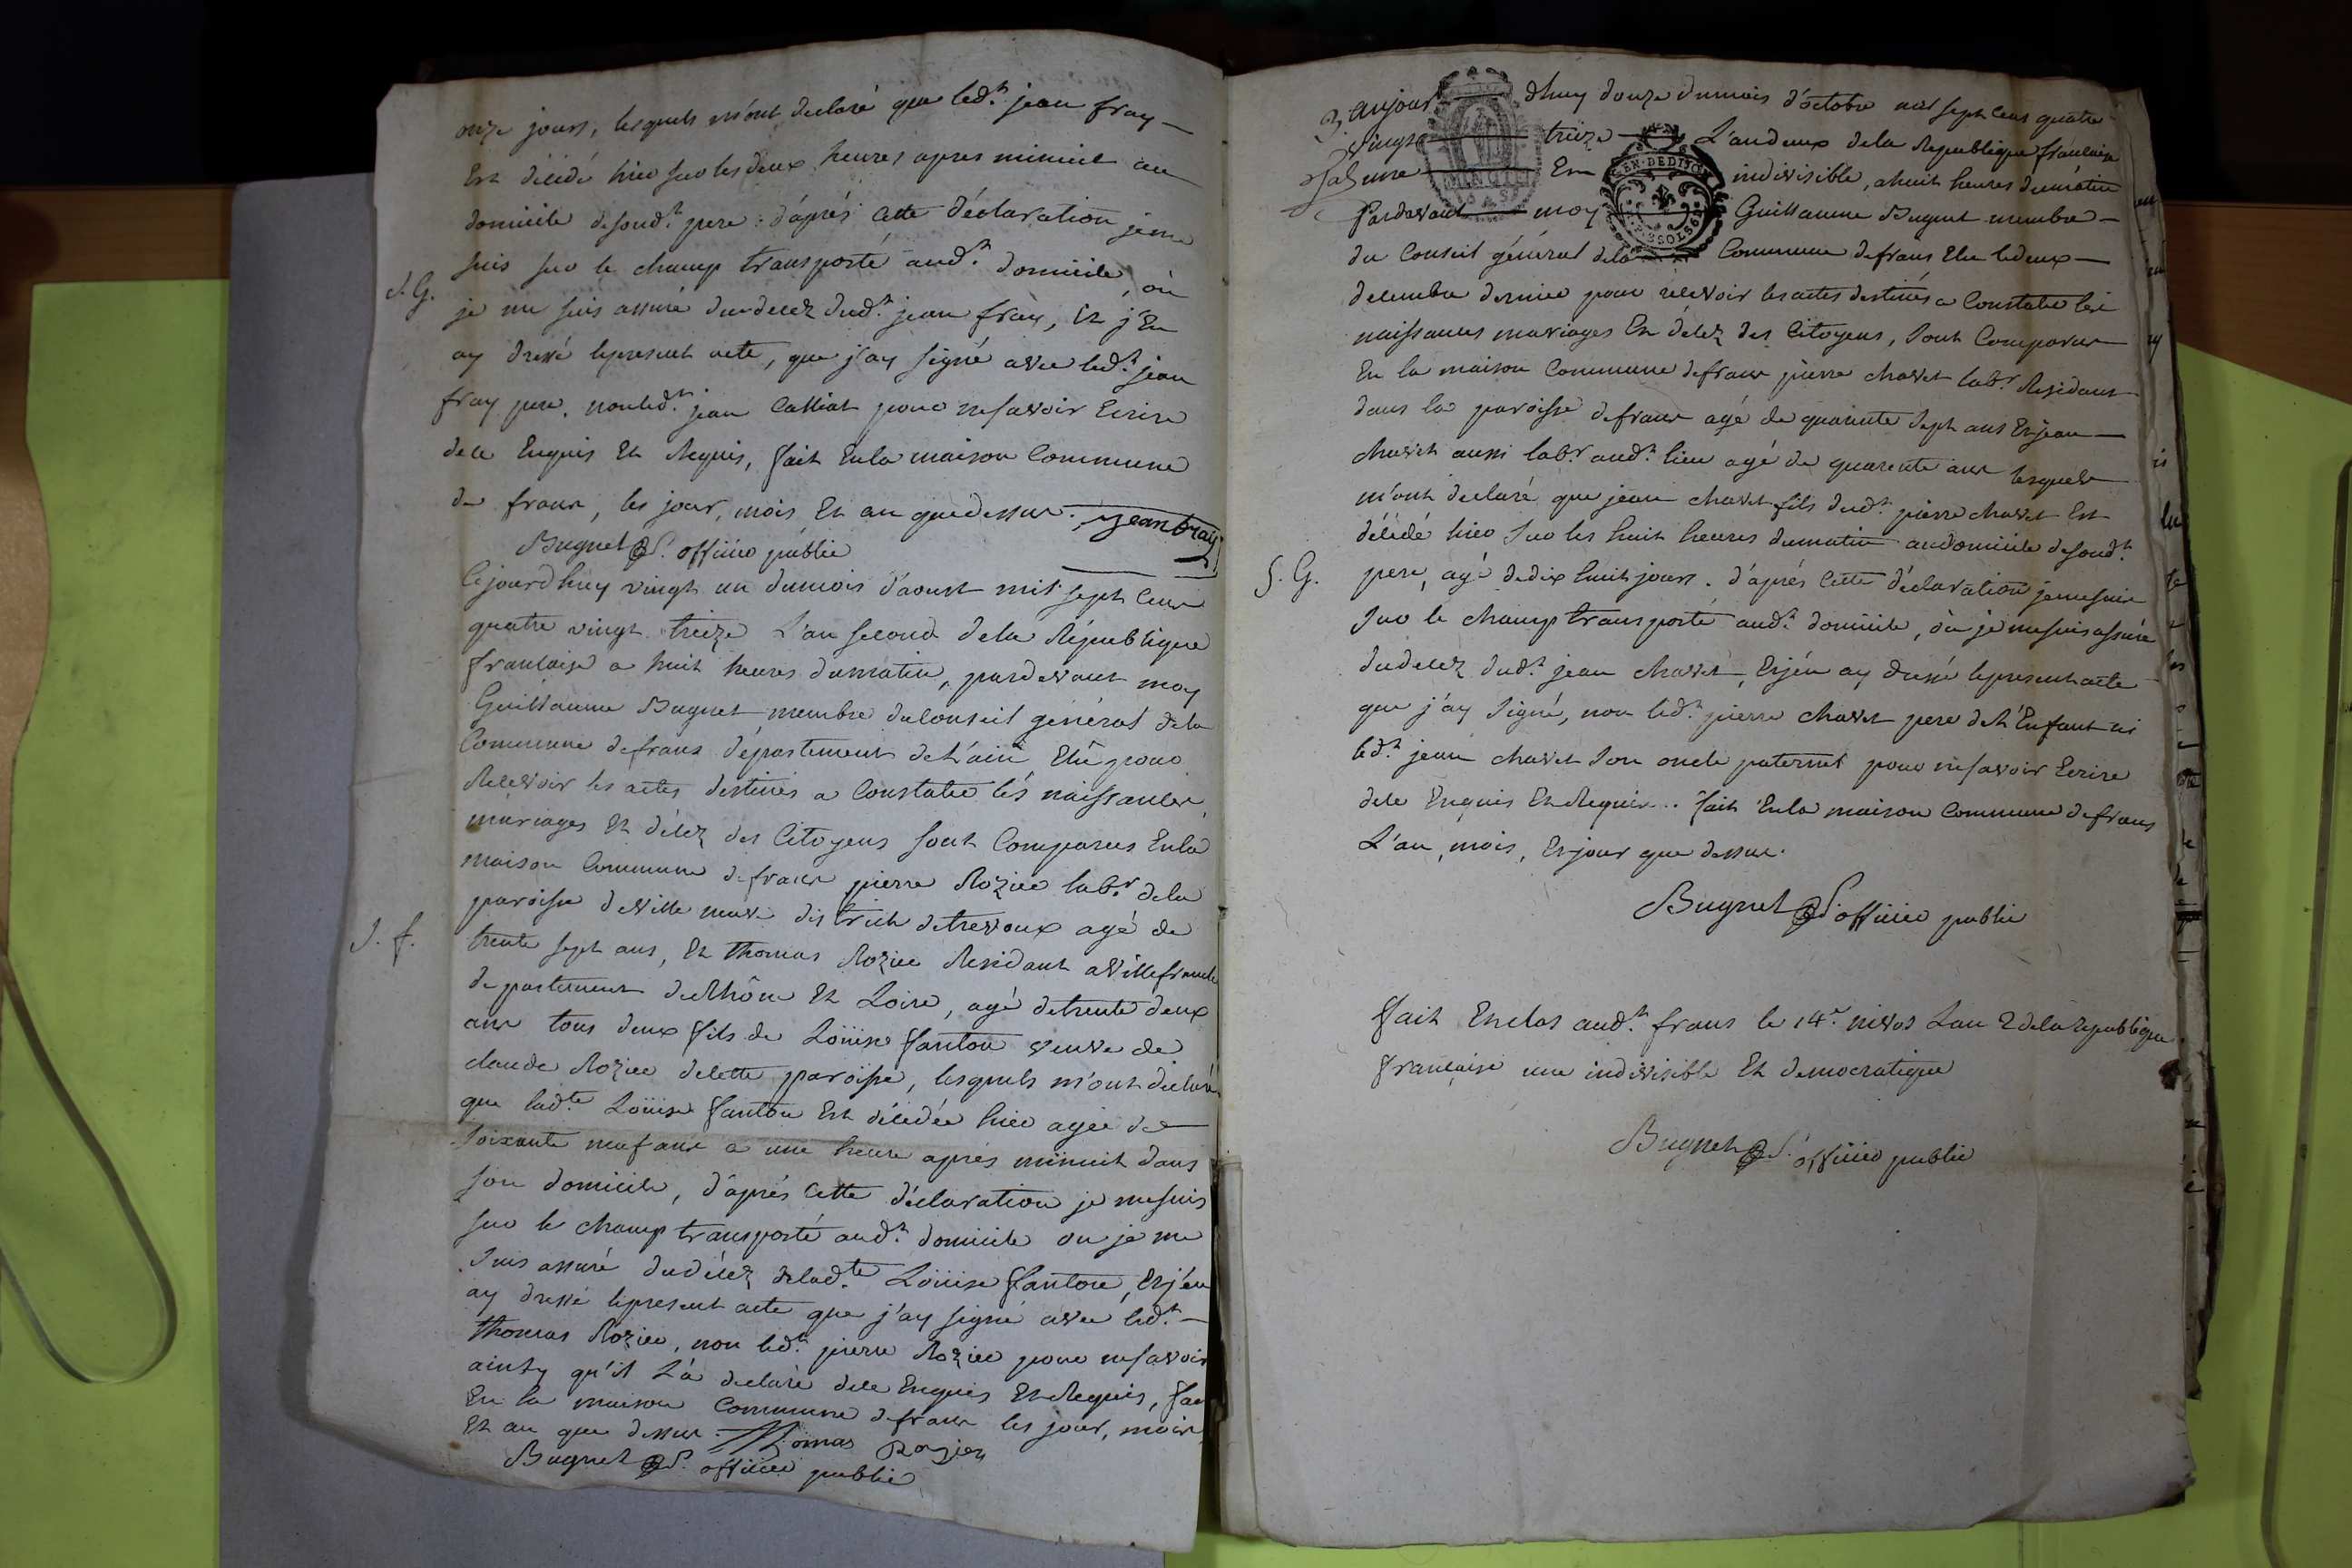 onze jours, lesquels m'ont declaré que led.t jean fray
Est décédé hier sur les deux heures apres minuit au
domicile de sond.t pere. d'aprés cette déclaration je me
suis sur le champ transporté aud.t domicile, où
S. G.
je me suis assuré du decez dud.t jean fray, Et j'En
ay dressé le present acte, que j'ay signé avec led.t jean
fray pere, non led.t jean Calliat pour ne savoir Ecrire
de ce Enquis Et Requis, fait En la maison Commune
de frans, les jour, mois Et an que dessus. jean fray
Bugnet offiiier public
Cejourdhuy vingt un du mois d'aoust mil sept Cens
quatre vingt treize L'an second de la République
francaise a huit heures du matin, pardevant moy
Guillaume Bugnet membre du Conseil général de la
Commune de frans département de l'ain Elû pour
Recevoir les actes destinés a Constater lés naissances,
mariages Et décez des Citoyens sont Comparus En la
maison Commune de frans pierre Rozier lab.r de la
paroisse de ville neuve district de trevoux agé de
S. f.
trente sept ans, Et thomas Rozier Residant a villefranche
departement de Rhône Et Loire, agé de trente deux
ans tous deux fils de Loüise fanton veuve de
claude Rozier de cette paroisse, lesquels m'ont declaré
que lad.te Loüise fanton Est décedée hier agée de
soixante neuf ans a une heure aprés minuit dans
son domicile, d'aprés Cette déclaration je me suis
sur le champ transporté aud.t domicile ou je me
suis assuré du décez de lad.te Loüise fanton, Et j'en
ay dressé le present acte que j'ay signé avec led.t
thomas Rozier, non led.t pierre Rozier pour ne savoir
ainsy qu'il L'a declaré de ce Enquis Et Requis, fai
En la maison Commune de frans les jour, mois
Et an que dessus. Thomas Rozier
Bugnet offiiier public
aujourdhuy douze du mois d'octobre mil sept cens quatre
vingt treize L'an deux de la Republique francaise
une Et indivisible, a huit heures du matin
Pardevant moy Guillaume Bugnet membre
du Conseil général de la Commune de frans Elu le deux
decembre dernier pour recevoir les actes destinés a Constater les
naissances mariages Et décez des Citoyens, sont Comparus
En la maison Commune de frans pierre chavet lab.r Residant
dans la paroisse de frans agé de quarante sept ans Et jean
chavet aussi lab.r aud.t lieu agé de quarente ans lesquels
m'ont declaré que jean chavet fils dud.t pierre chavet Est
décédé hier sur les huit heures du matin au domicile de sond.t
S. G.
pere, agé de dix huit jours. d'aprés Cette déclaration je me suis
sur le champ transporté aud.t domicile, où je me suis assuré
du decez dud.t jean chavet, Et j'én ay dressé le present acte
que j'ay signé, non led.t pierre chavet pere de l'Enfant ni
led.t jean chavet son oncle paternel pour ne savoir Ecrire
de ce Enquis Et Requis.. fait En la maison Commune de frans
L'an, mois, Et jour que dessus.
Bugnet offiiier public
fait Et clos aud.t frans le 14.e nivos L'an 2 de la republique
française une indivisible Et democratique
Bugnet offiiier public